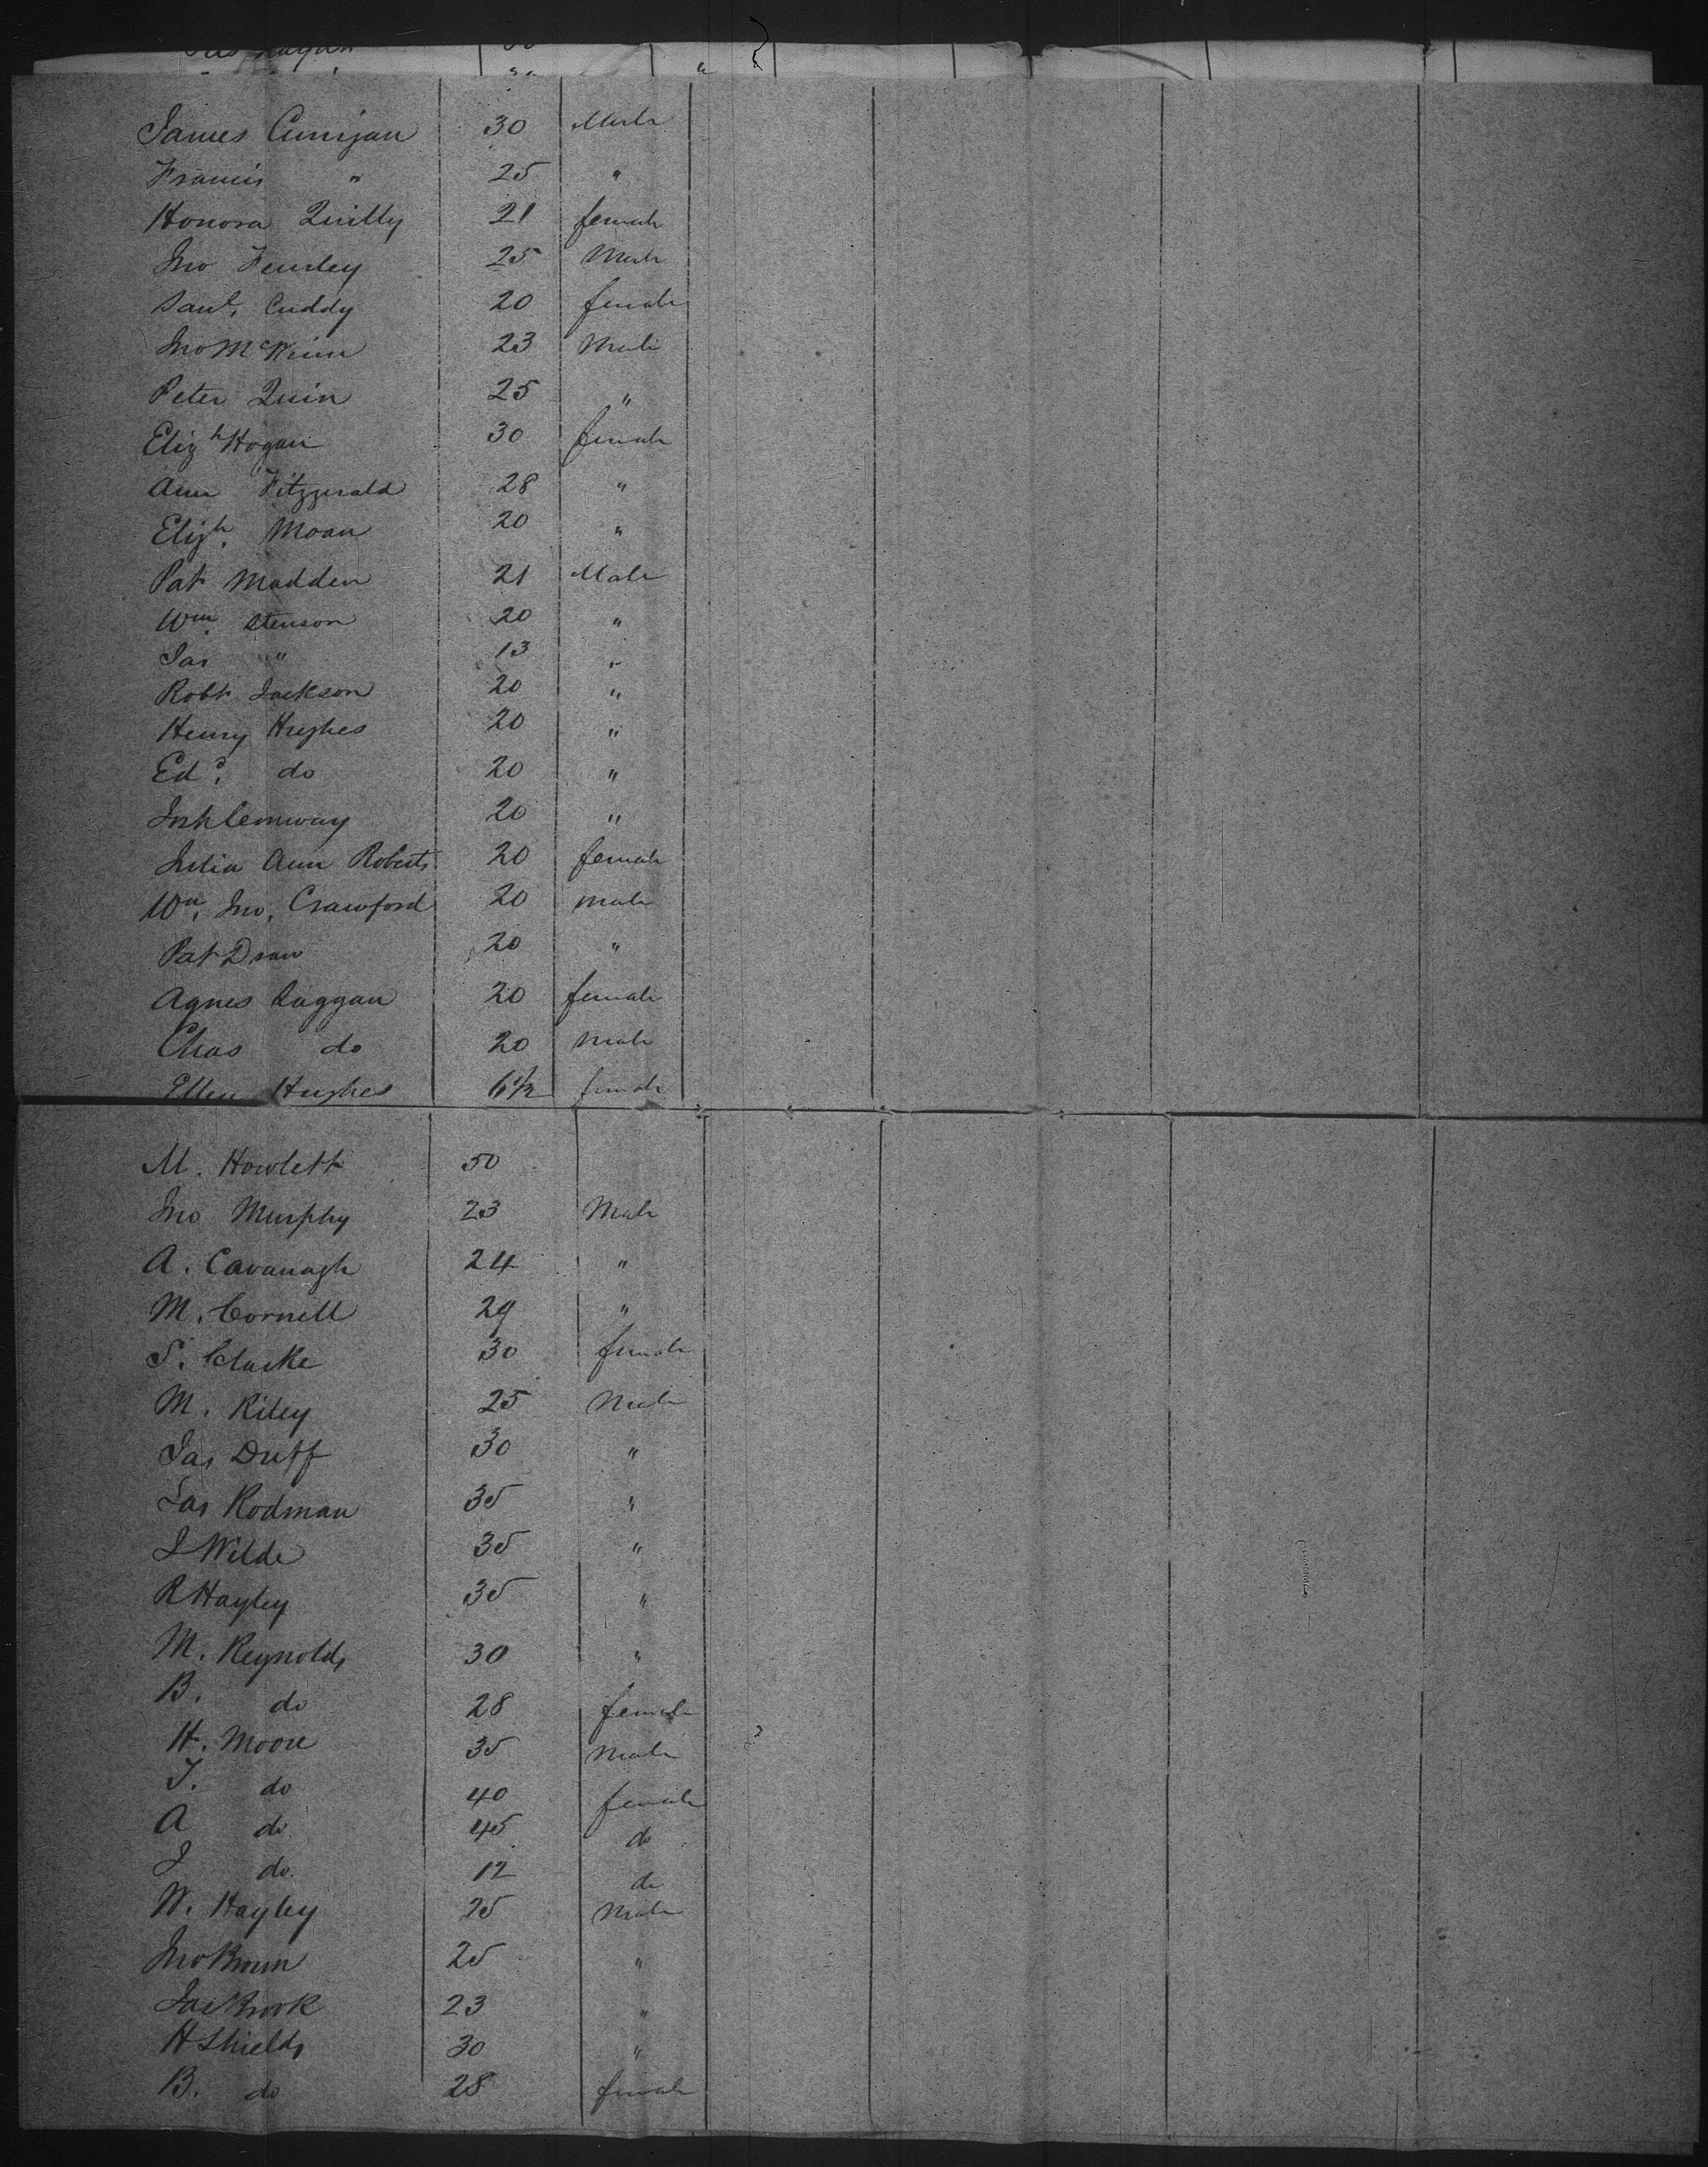 James Cunijan 30 Male
Francis " 25 "
Honora Quilty 21 female
Jno Fenley 25 Male
Cuddy 20 female
Jno 23 Male
Peter Quin 25 "
Eliz h Hogan 30 female
Ann Fitzgerald 28 "
Elizh. Moan 20 "
Pat Madden 21 Male
Wm. Stenson 20 "
Jas " 13 "
Robt Jackson 20 "
Henry Hughes 20 "
Edd. do 20 "
20 "
Julia Ann Roberts 20 female
Wm. Jno. Crawford 20 male
Pat 20 "
Agnes Duggan 20 female
Chas do 20 male
Ellen Hughes 6 1/2 female
M. Howlett 50
Jno Murphy 23 Male
A. Cavanagh 24 "
M. Cornell 29 "
S. Clarke 30 female
M. Riley 25 Male
Jas Duff 30 "
Jas Rodman 35 "
J Wilde 35 "
R Hayley 35 "
M. Reynolds 30 "
B. do 28 female
H. Moore 35 male
J. do 40 female
A do 45 do
J do. 12 do
W. Hayley 25 Male
Jno Brown 25 "
Jas Brook 23 "
H Shields 30 "
B. do 28 female